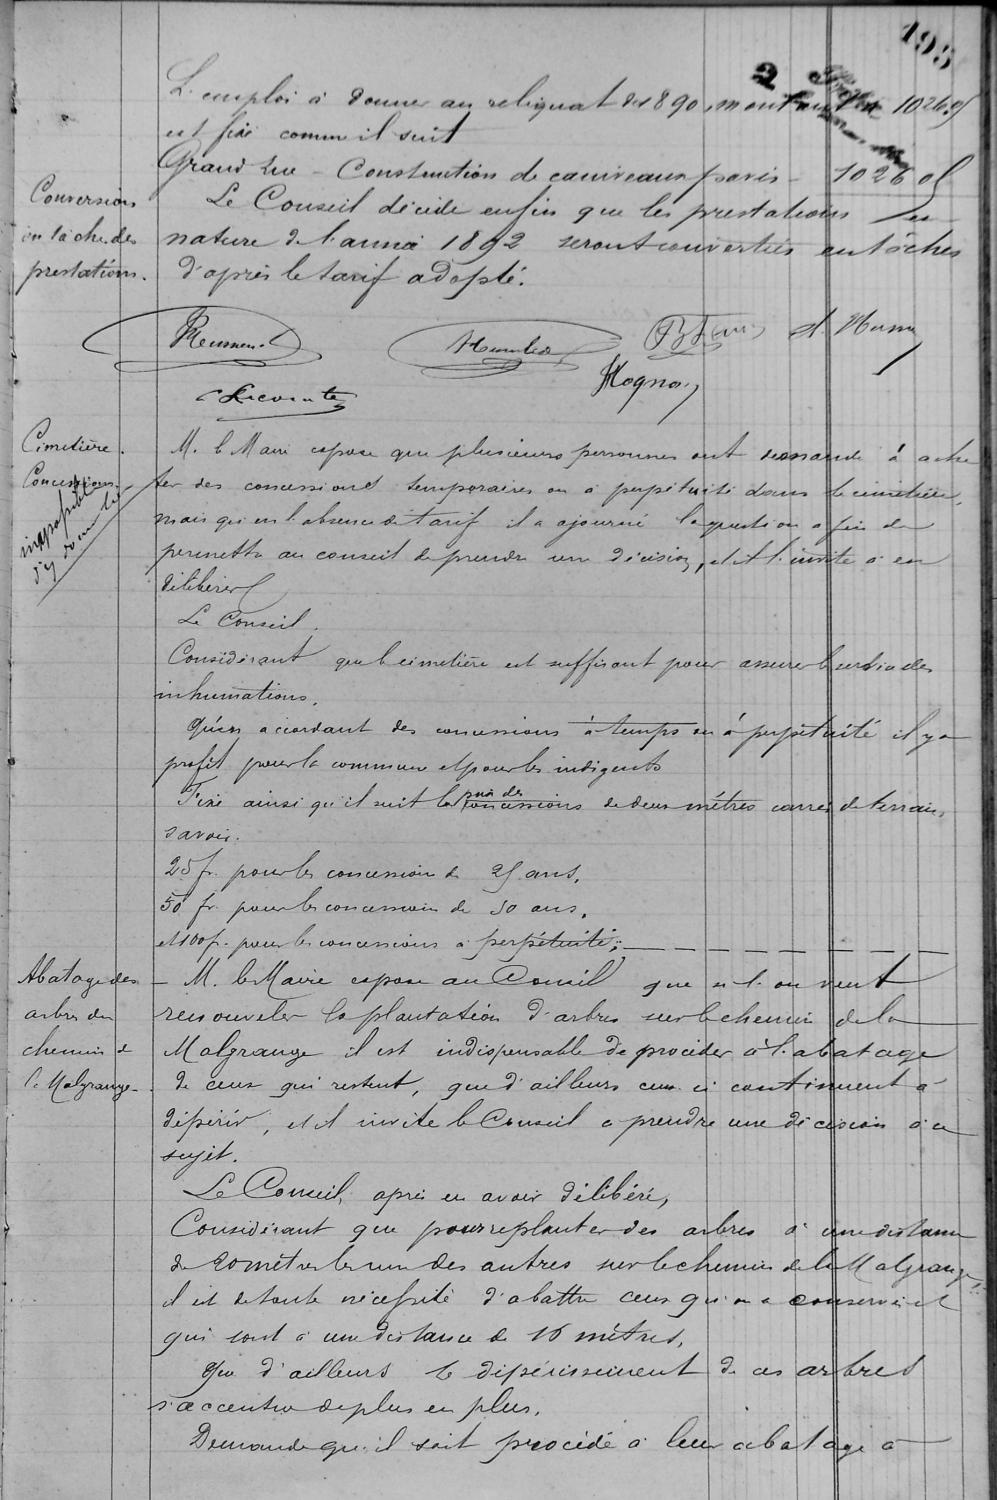 195
2
L'emploi à donner au reliquat de 1890, montant 1026.05
est fixé comme il suit
Grand rue - Construction de caniveaux pavés - 1026 05
Conversion
en tâches des
prestations.
Le Conseil décide enfin que les prestations en
nature de l'année 1892 seront converties en tâches
d'après le tarif adopté.
Lecomte
Cimetière.
Concessions.
M. le Maire expose que plusieurs personnes ont demandé à ache
ter des concessions temporaires ou à perpétuité dans le cimetière,
mais qu'en l'absence de tarif il a ajourné la question afin de
permettre au conseil de prendre une décision, et il l'invite à en
délibérer
Le Conseil,
Considérant que le cimetière est suffisant pour assurer le service des
inhumations,
Qu'en accordant des concessions à temps ou à perpétuité il y a
profit pour la commune et pour les indigents
Fixe ainsi qu'il suit le prix des concessions de deux mètres carrés de terrain,
savoir.
25 fr. pour les concessions de 25 ans,
50 fr. pour les concessions de 50 ans,
et 100 f. pour les concessions à perpétuité;
Abatage des
arbres du
chemin de
la Malgrange
- M. le Maire expose au Conseil que si l'on veut
renouveler la plantation d'arbres sur le chemin de la
Malgrange il est indispensable de procéder à l'abatage
de ceux qui restent, que d'ailleurs ceux ci continuent à
dépérir, et il invite le Conseil à prendre une décision à ce
sujet.
Le Conseil, après en avoir délibéré,
Considérant que pour replanter des arbres à une distance
de 20 mètres les uns des autres sur le chemin de la Malgrange,
il est de toute nécessité d'abattre ceux qu'on a conservé et
qui sont à une distance de 16 mètres,
Que d'ailleurs le dépérissement de ces arbres
s'accentue de plus en plus,
Demande qu'il soit procédé à leur abatage à